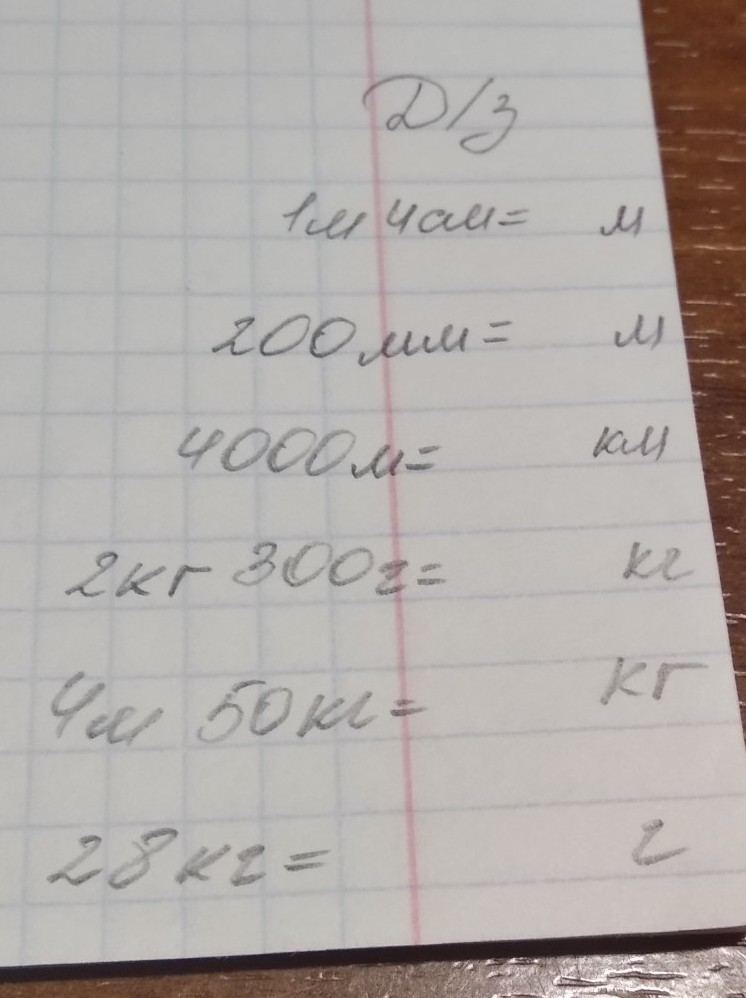 Д/з
1м 4см= м
200мм= м
4000м= км
2кг 300г= кг
4м 50кг= кг
28кг= г